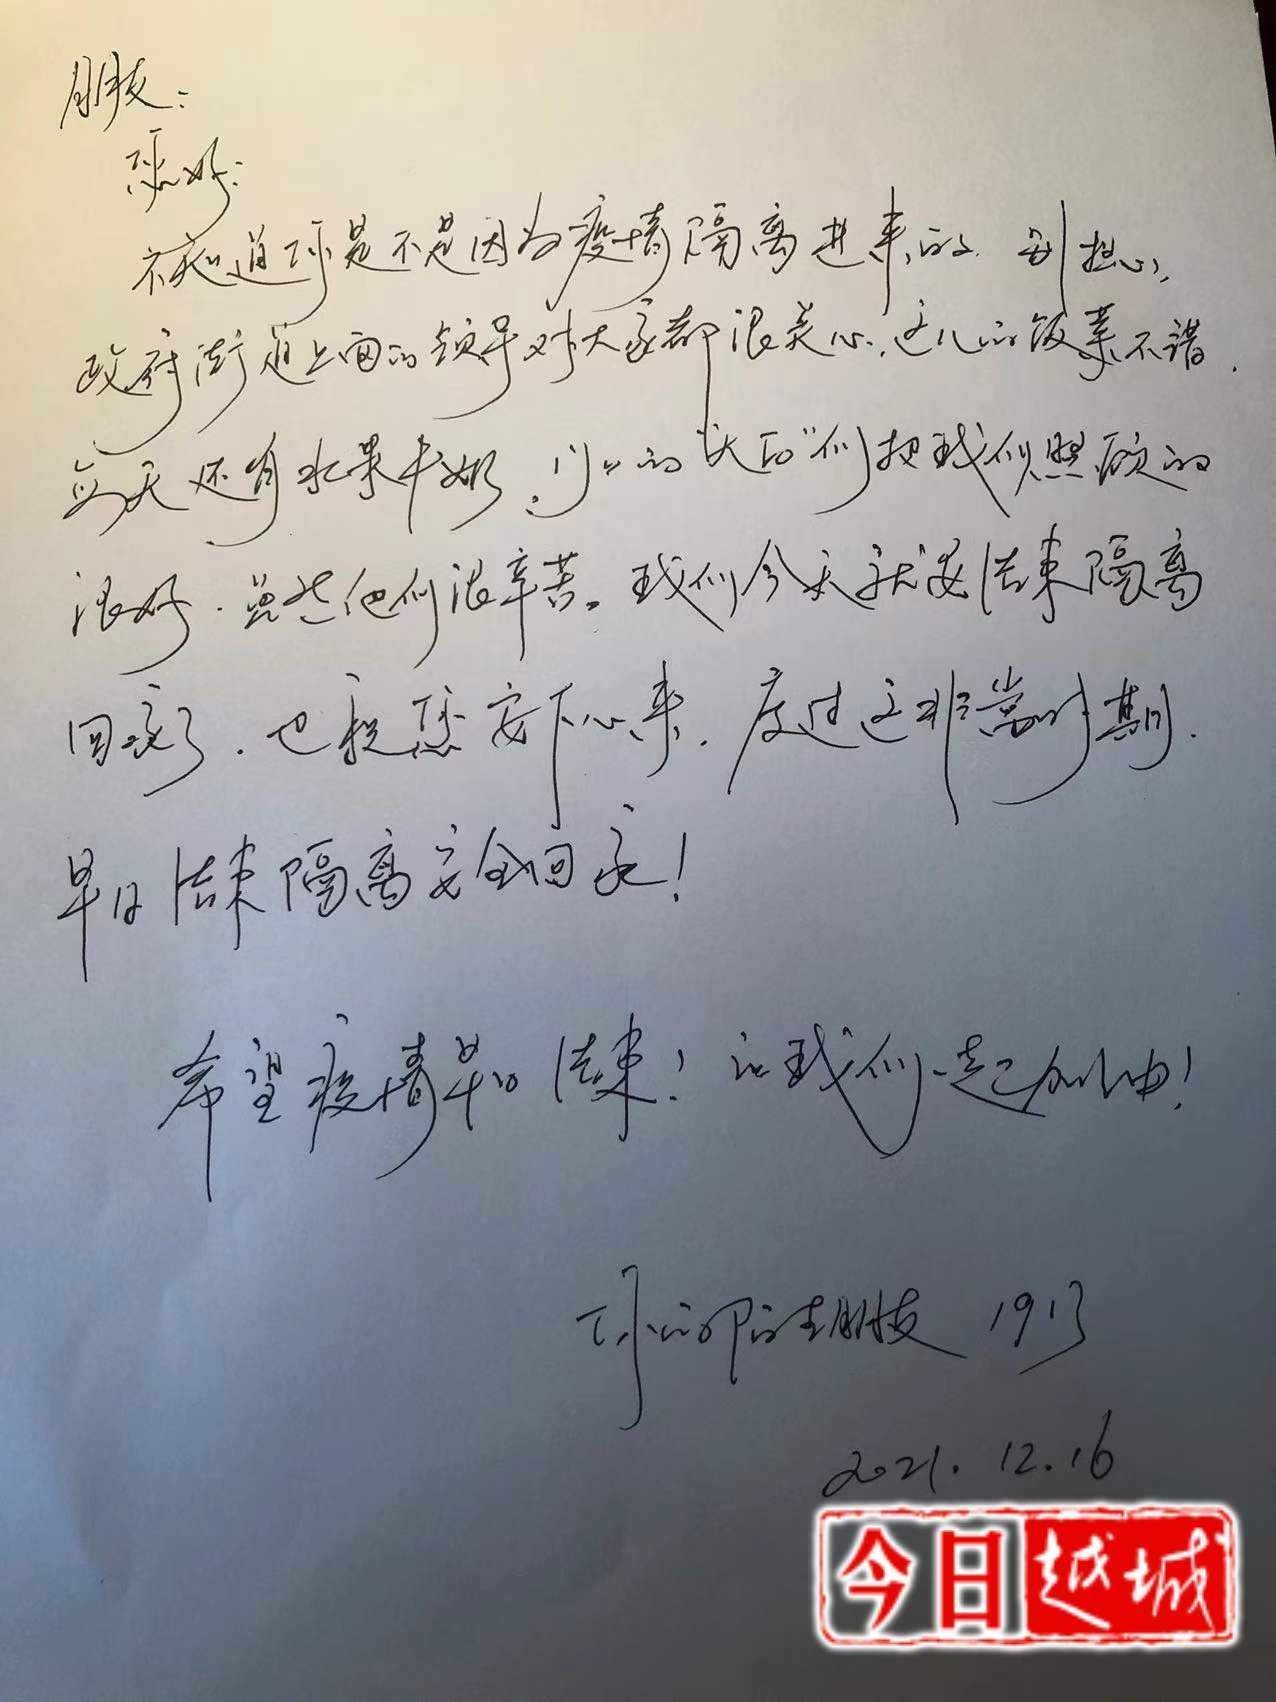 朋友：
您好：
不知道你是不是因为疫情隔离进来的.别担心，
政府街道上面的领导对大家都很关心，这儿的饭菜不错.
每天还有水果牛奶，门口的"大白"们把我们照顾的
很好.当然他们很辛苦。我们今天就要结束隔离
回家了.也祝您安下心来.度过这非常时期.
早日结束隔离安全回家！
希望疫情早日结束！让我们一起加油！
你的陌生朋友 1913
2021.12.16
今日越城